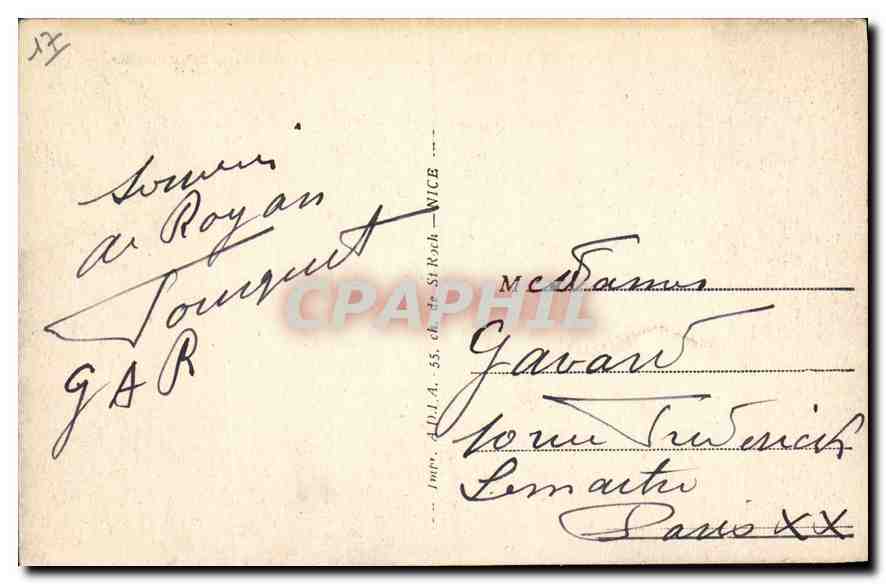 17
Souvenir
de Royan
Fouquet
GAR
Impr. A.D.I.A. 55, ch. de St Roch — NICE
CPAPHIL
Mesdames
Gavard
10 rue Frederick
Lemaitre
Paris XX